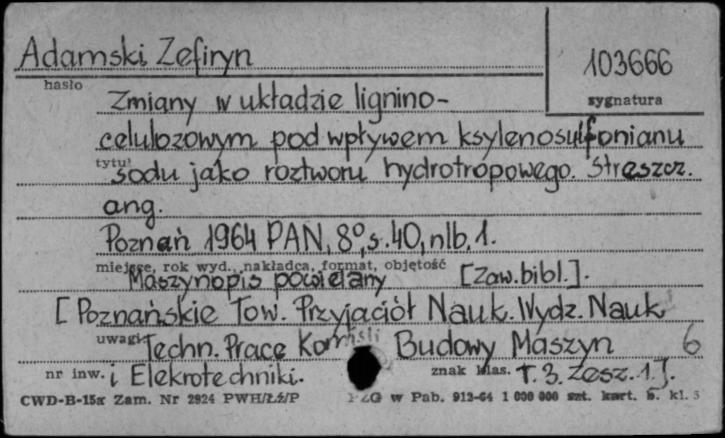 Adamski Zefiryn
103666
hasło
sygnatura
Zmiany w układzie lignino-
celulozowym pod wpływem ksylenosulfonianu
tytuł
sodu jako roztworu hydrotropowego. Streszcz.
ang.
Poznań 1964 PAN, 8°, s. 40, nlb. 1.
miejsce, rok wyd., nakładca, format, objętość
Maszynopis powielany [Zaw. bibl.].
[Poznańskie Tow. Przyjaciół Nauk. Wydz. Nauk
uwagi
Techn. Prace Komisji Budowy Maszyn 6
nr inw.
i Elekrotechniki.
znak klas.
T. 3. Zesz. 1].
CWD-B-15a Zam. Nr 2924 PWH/Łź/P
PZG w Pab. 912-64 1 000 000 szt. kart. b. kl. 5